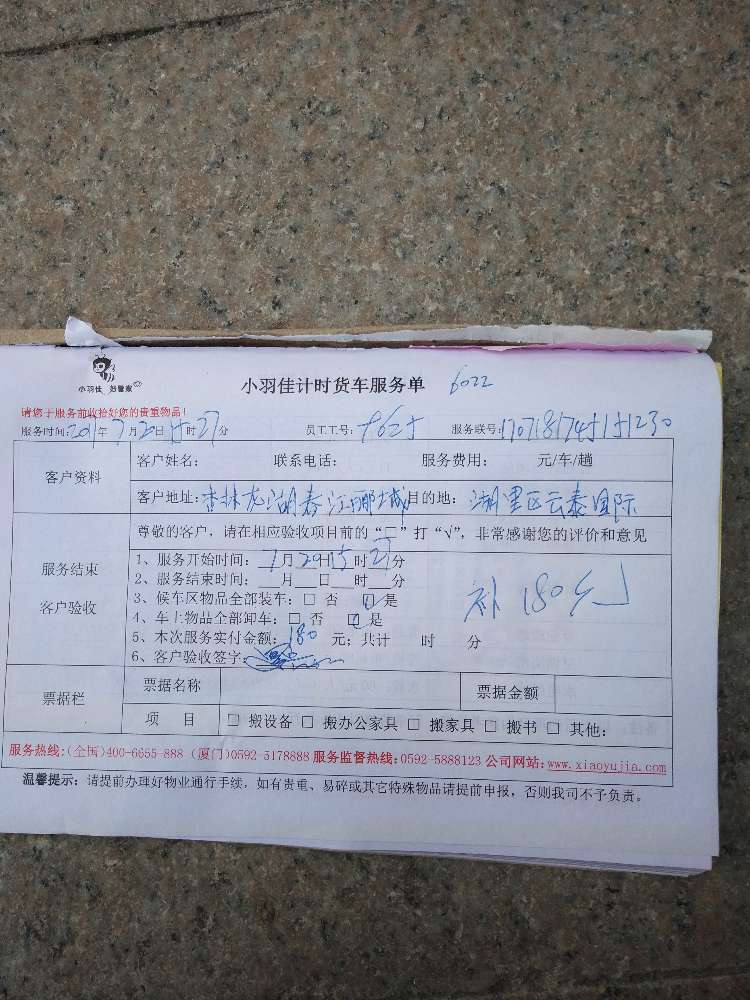 小羽佳 好管家
小羽佳计时货车服务单 6022
请您于服务前收拾好您的贵重物品!
服务时间:201年7月20日15时27分 员工工号: 服务联号:
客户资料
客户姓名: 联系电话: 服务费用: 元/车/趟
客户地址:杏林龙湖春江郦城 目的地:湖里区云泰国际
尊敬的客户,请在相应验收项目前的“□”打“√”,非常感谢您的评价和意见
服务结束
客户验收
1、服务开始时间:7月20日15时27分
2、服务结束时间:__月__日__时__分
3、候车区物品全部装车:□ 否 □是
4、车上物品全部卸车:□ 否 □是
5、本次服务实付金额:180 元;共计 时 分
6、客户验收签字:
补180元
票据栏
票据名称 票据金额
项 目 □ 搬设备 □ 搬办公家具 □ 搬家具 □ 搬书 □ 其他:
服务热线:(全国)400-6655-888 (厦门)0592-5178888 服务监督热线:0592-5888123 公司网站:www.xiaoyujia.com
温馨提示:请提前办理好物业通行手续,如有贵重、易碎或其它特殊物品请提前申报,否则我司不予负责。